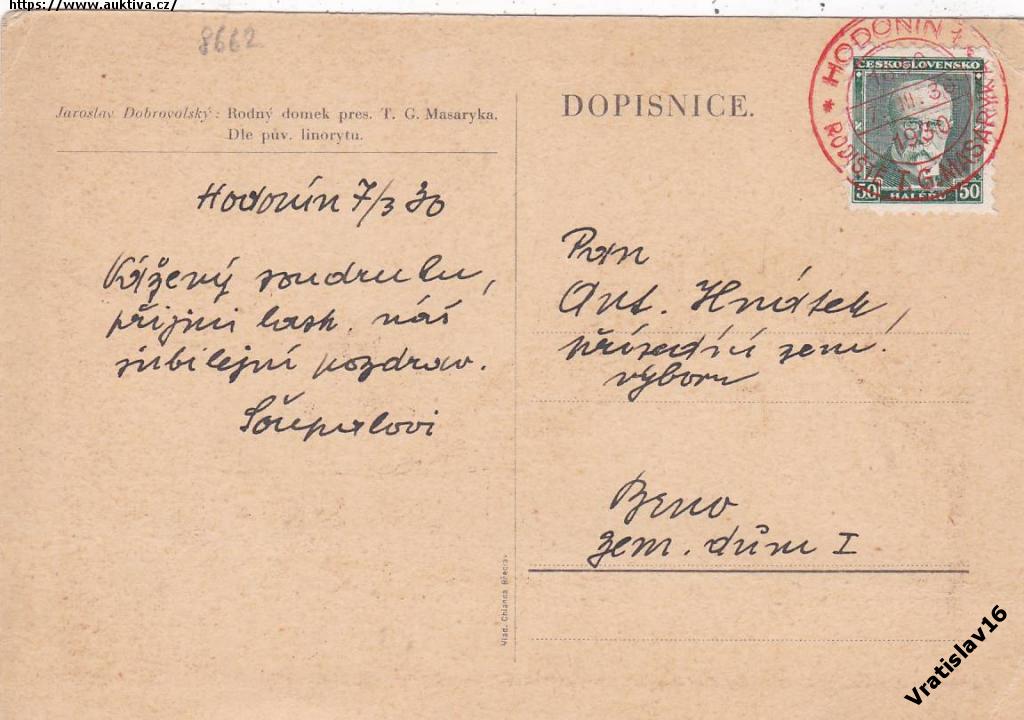 https://www.auktiva.cz/
8662
Jaroslav Dobrovolský: Rodný domek pres. T. G. Masaryka.
Dle pův. linorytu.
Hodonín 7/3 30
Vážený soudruhu,
přijmi lask. náš
jubilejní pozdrav.
DOPISNICE.
HODONÍN 1
7. III. 30
1930
RODIŠTĚ T. G. MASARYKA
ČESKOSLOVENSKO
50 HALÉŘŮ 50
Pan
Ant. Hnátek,
přísedící zem.
výboru
Brno
zem. dům I
Vlad. Chlanda Břeclav
Vratislav16